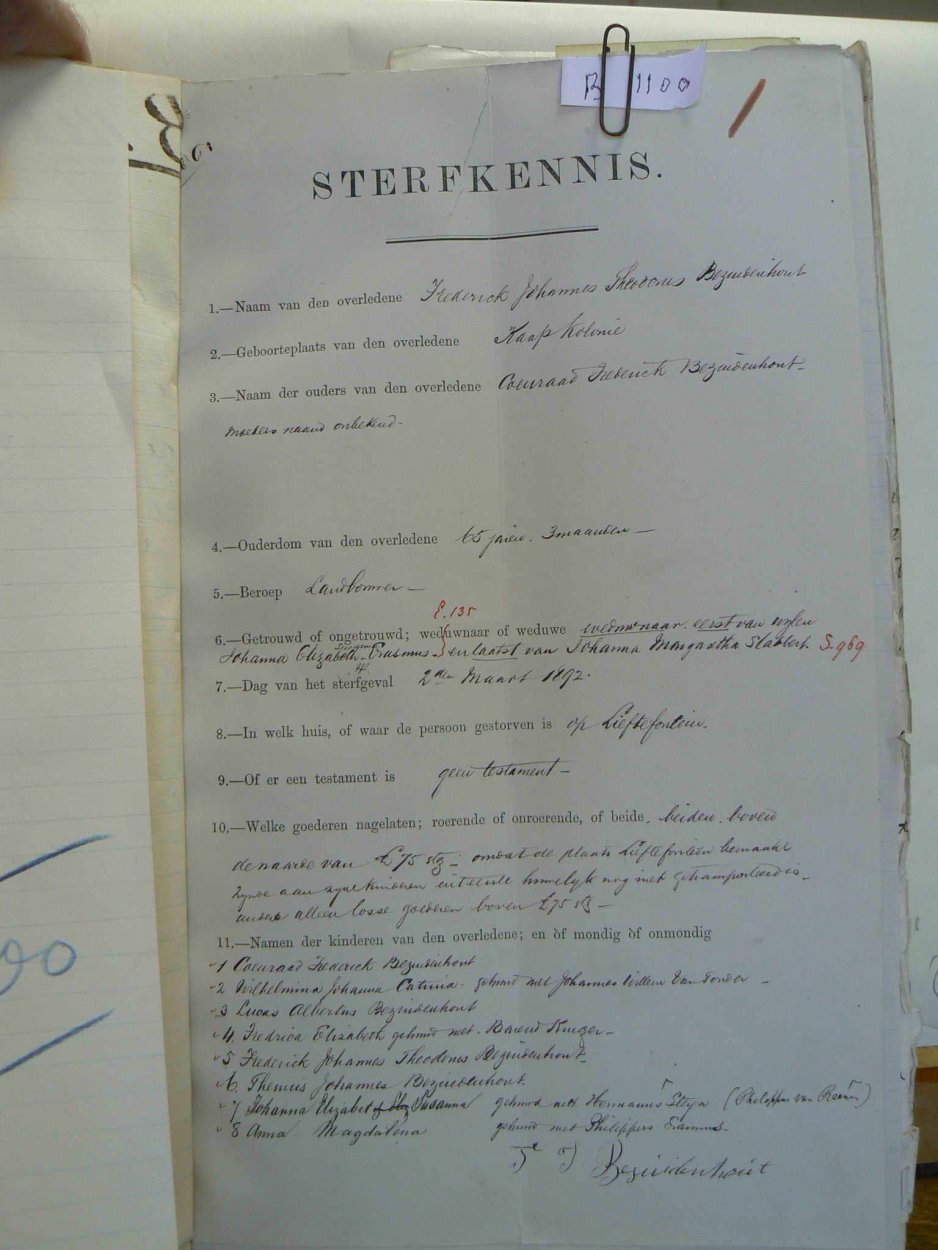 B 1100
STERFKENNIS.
1.—Naam van den overledene Frederick Johannes Theodorus Bezuidenhout
2.—Geboorteplaats van den overledene Kaap Kolonie
3.—Naam der ouders van den overledene Coenraad Frederick Bezuidenhout
moeders naam onbekend.
4.—Ouderdom van den overledene 65 jaren. 3 maanden —
5.—Beroep Landbouwer —
E.135
6.—Getrouwd of ongetrouwd; weduwnaar of weduwe weduwnaar. eerst van wylen
Johanna Elizabeth Erasmus - en laatst van Johanna Margaretha Slabbert. S.969
7.—Dag van het sterfgeval 2den Maart 1892.
8.—In welk huis, of waar de persoon gestorven is op Lieftefontein.
9.—Of er een testament is geen testament —
10.—Welke goederen nagelaten; roerende of onroerende, of beide. beiden. boven
de waarde van £75 stg — omdat de plaats Lieftefontein
zynde aan zyne kinderen uit eerste huwelyk nog niet is —
alleen losse goederen boven £75 stg —
11.—Namen der kinderen van den overledene; en òf mondig òf onmondig
1 Coenraad Frederick Bezuidenhout
2 Wilhelmina Johanna Catrina. gehuwd met Johannes Willem Van Tonder —
3 Lucas Albertus Bezuidenhout
4. Fredrica Elizabeth gehuwd met. Barend Kruger —
5 Frederick Johannes Theodorus Bezuidenhout
6. Theunis Johannes Bezuidenhout.
7 Johanna Elizabet Susanna gehuwd met Hermanus Steyn (Philippus van Reenen)
8 Anna Magdalena gehuwd met Philippus Erasmus —
F J Bezuidenhout
00